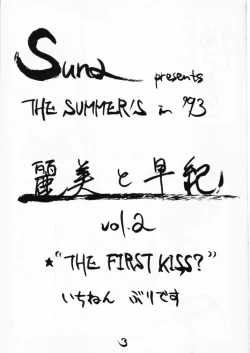 Suna presents
THE SUMMER'S in '93
麗美と早紀!
vol.2
★"THE FIRST KISS?"
いちねん ぶりです
3